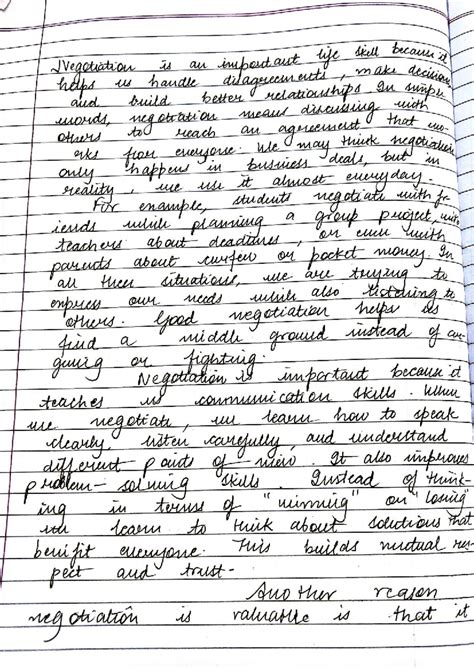 Negotiation is an important life skill because it
helps us handle disagreements, make decisions
and build better relationships In simple
words, negotiation means discussing with
others to reach an agreement that wo-
rks for everyone. We may think negotiation
only happens in business deals, but in
reality, we use it almost everyday.
For example, students negotiate with fr-
iends while planning a group project, with
teachers about deadlines, or even with
parents about curfew or pocket money. In
all these situations, we are trying to
express our needs while also listening to
others. Good negotiation helps us
find a middle ground instead of ar-
guing or fighting.
Negotiation is important because it
teaches us communication skills. When
we negotiate, we learn how to speak
clearly, listen carefully, and understand
different points of view. It also improves
problem-solving skills. Instead of think-
ing in terms of "winning" or "losing"
we learn to think about solutions that
benifit everyone. This builds mutual res-
pect and trust.
Another reason
negotiation is valuable is that it